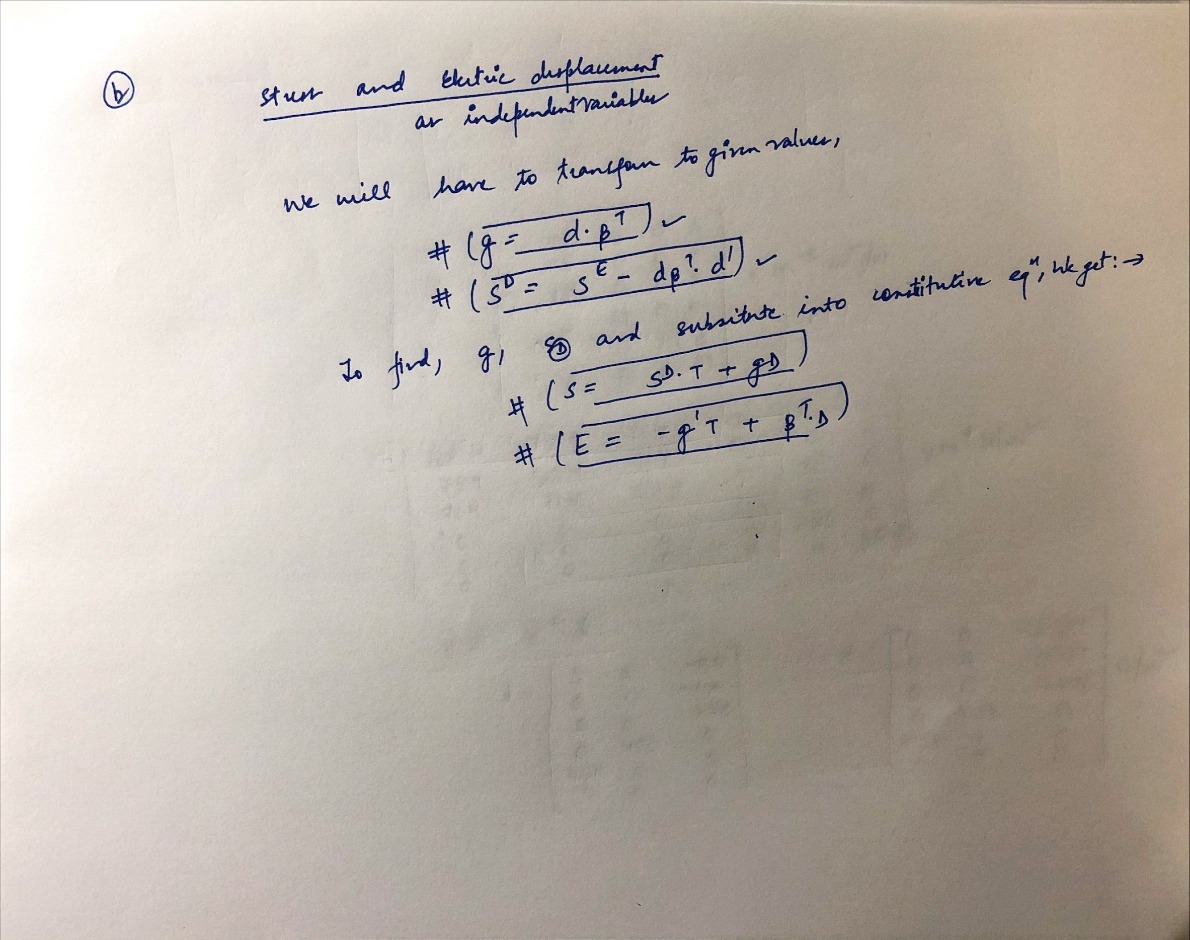 (b) Stress and Electric displacement
as independent variables
We will have to transform to given values,
# (g = d.β^T) ✓
# (S^D = S^E - dβ^T. d') ✓
To find, g, S^D and subsitute into constitutive eq^n, we get: →
# (S = S^D. T + gD)
# (E = -g'T + β^T.D)